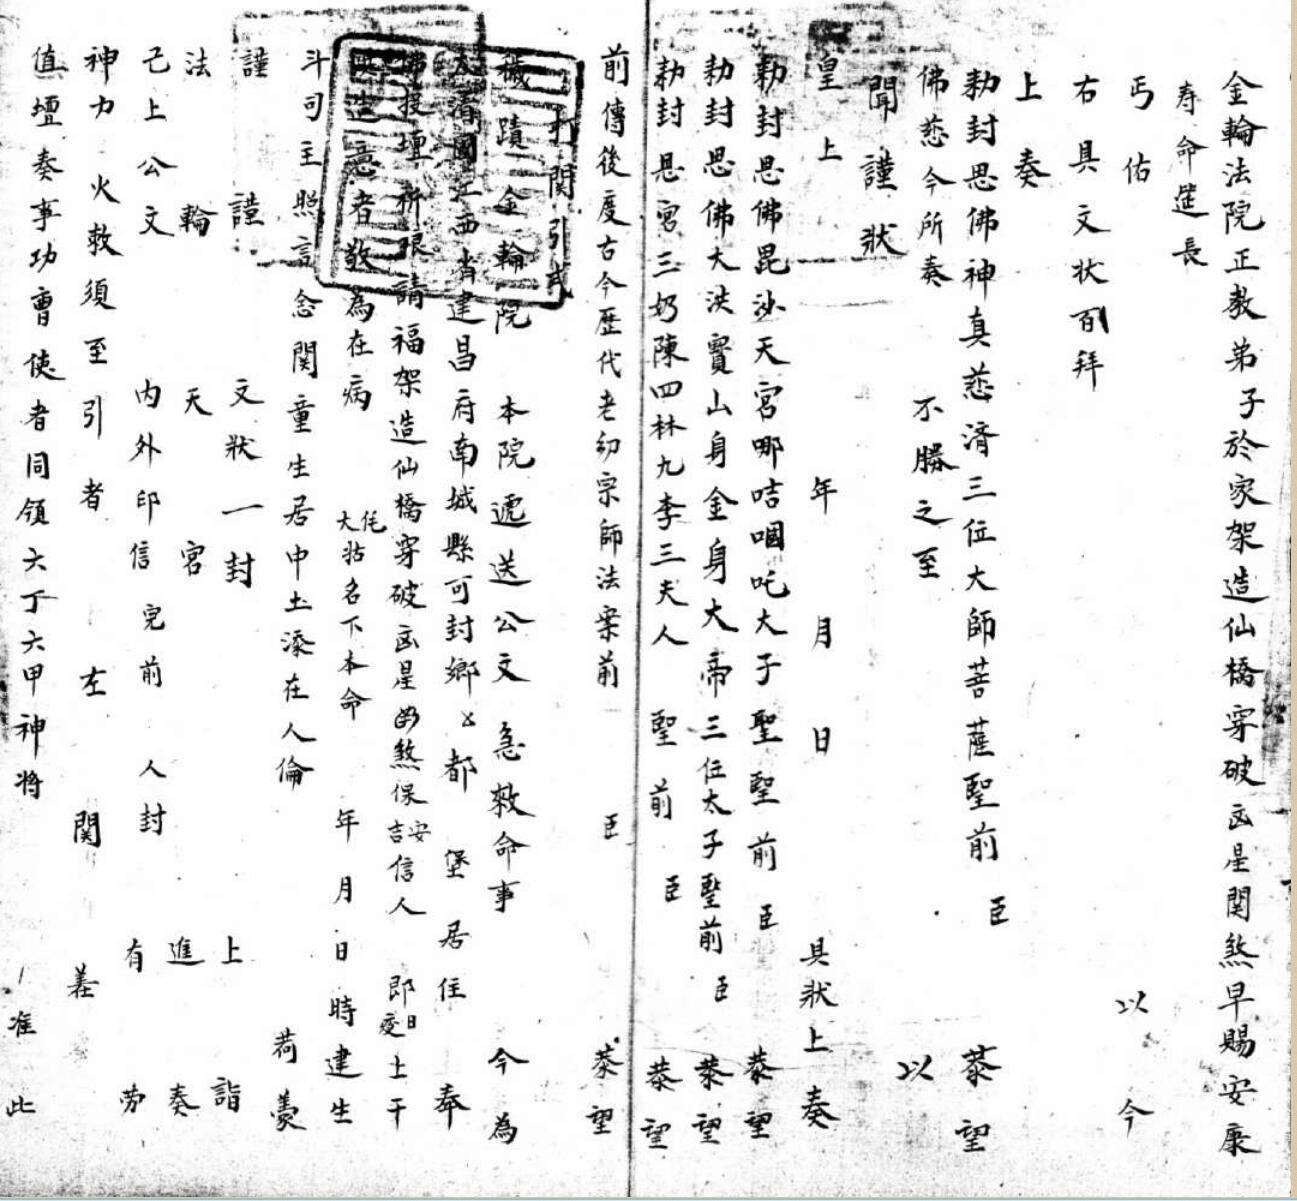 金輪法院正教弟子於家架造仙橋穿破凶星関煞早賜安康
寿命延長
丐佑 以今
右具文状百拜
上奏
勅封恩佛神真慈濟三位大師菩薩聖前 臣 恭望
佛慈今所奏 不勝之至 以
聞謹狀
皇上 年 月 日 具狀上奏
勅封恩佛毘沙天宮哪咭啯吒太子聖聖前 臣 恭望
勅封恩佛大洪寳山身金身大帝三位太子聖前 臣 恭望
勅封恩宮三奶陳四林九李三夫人 聖前 臣 恭望
前傳後度古今歷代老幼宗師法案前 臣 恭望
打関引式
穢蹟金輪院 本院遞送公文急救命事 今為
大清國江西省建昌府南城縣可封鄉 都 堡 居住 奉
佛投壇祈 請福架造仙橋穿破凶星 煞保安吉信人 即日 士干
造意者敬為在病 名下本命 年 月 日 時建生
斗司主照言念関童生居中土添在人倫 荷蒙
謹謹 文狀一封 上詣
法輪 天宮 進奏
已上公文 内外印信完前 人封 有劳
神力火救須至引者 左 関 差
值壇奏事功曹使者同領六丁六甲神将 准此